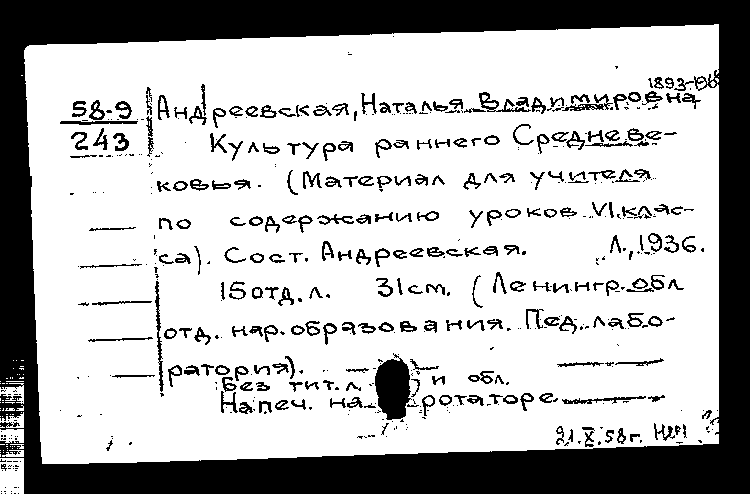 58-9
243
Андреевская, Наталья Владимировна
Культура раннего Средневе-
ковья. (Материал для учителя
по содержанию уроков VI клас-
са). Сост. Андреевская. Л., 1936.
15 отд. л. 31 см. (Ленингр. обл
отд. нар. образования. Пед. лабо-
ратория).
Без тит. л. и обл.
Напеч. на ротаторе.
21.X.58 г.